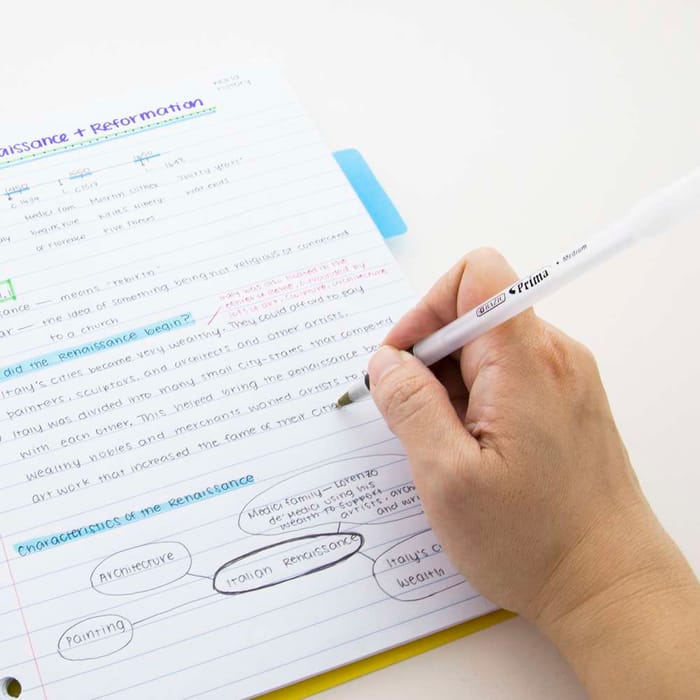 world
history
aissance + Reformation
1400 1500 1600
c.1434 c.1517 1648
Medici fam. Martin Luther Thirty Years'
begins rule writes Ninety- War ends
of Florence Five Theses
sance — means "rebirth"
ar — the idea of something being not religious or connected
to a church
Italy was also located in the
did the Renaissance begin?
Italy's cities became very wealthy. They could afford to pay
painters, sculptors, and architects and other artists.
Italy was divided into many small city-states that competed
with each other. This helped bring the Renaissance
wealthy nobles and merchants wanted artists to
art work that increased the fame of their
Characteristics of the Renaissance
Medici family — Lorenzo
de' Medici using his
wealth to support
artists, arch
and wr
Architecture
Italian Renaissance
Italy's c
wealth
Painting
BAZIC Prima • Medium